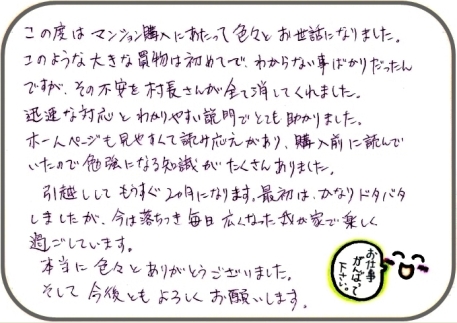 この度は マンション購入にあたって色々と お世話になりました。
このような大きな買物は初めてで、わからない事ばかりだったん
ですが、その不安を村長さんが全て消してくれました。
迅速な対応と わかりやすい説明でとても助かりました。
ホームページも見やすくて読み応えがあり、購入前に読んで
いたので勉強になる知識が たくさんありました。
引越ししてもうすぐ2ヵ月になります。最初は、かなりドタバタ
しましたが、今は落ちつき毎日 広くなった我が家で楽しく
過ごしています。
本当に 色々と ありがとうございました。
そして 今後とも よろしく お願いします。
お仕事
がんばって
下さい。